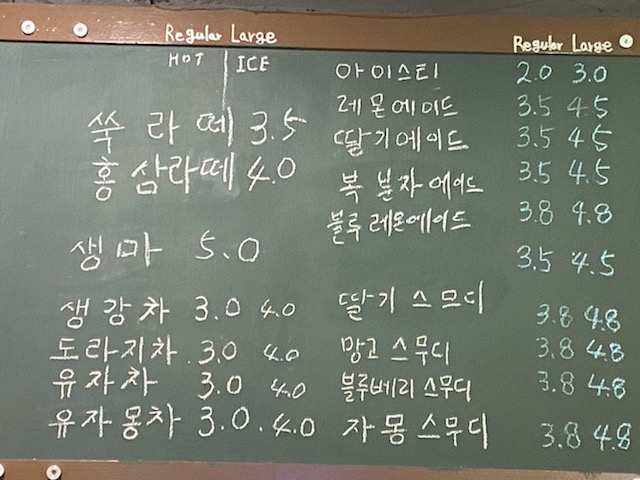 Regular Large
HOT ICE
쑥 라떼 3.5
홍삼라떼 4.0
생마 5.0
생강차 3.0 4.0
도라지차 3.0 4.0
유자차 3.0 4.0
유자몽차 3.0 . 4.0
Regular Large
아이스티 2.0 3.0
레몬에이드 3.5 4.5
딸기에이드 3.5 4.5
복분자에이드 3.5 4.5
블루레몬에이드 3.8 4.8
3.5 4.5
딸기 스무디 3.8 4.8
망고 스무디 3.8 4.8
블루베리 스무디 3.8 4.8
자몽스무디 3.8 4.8